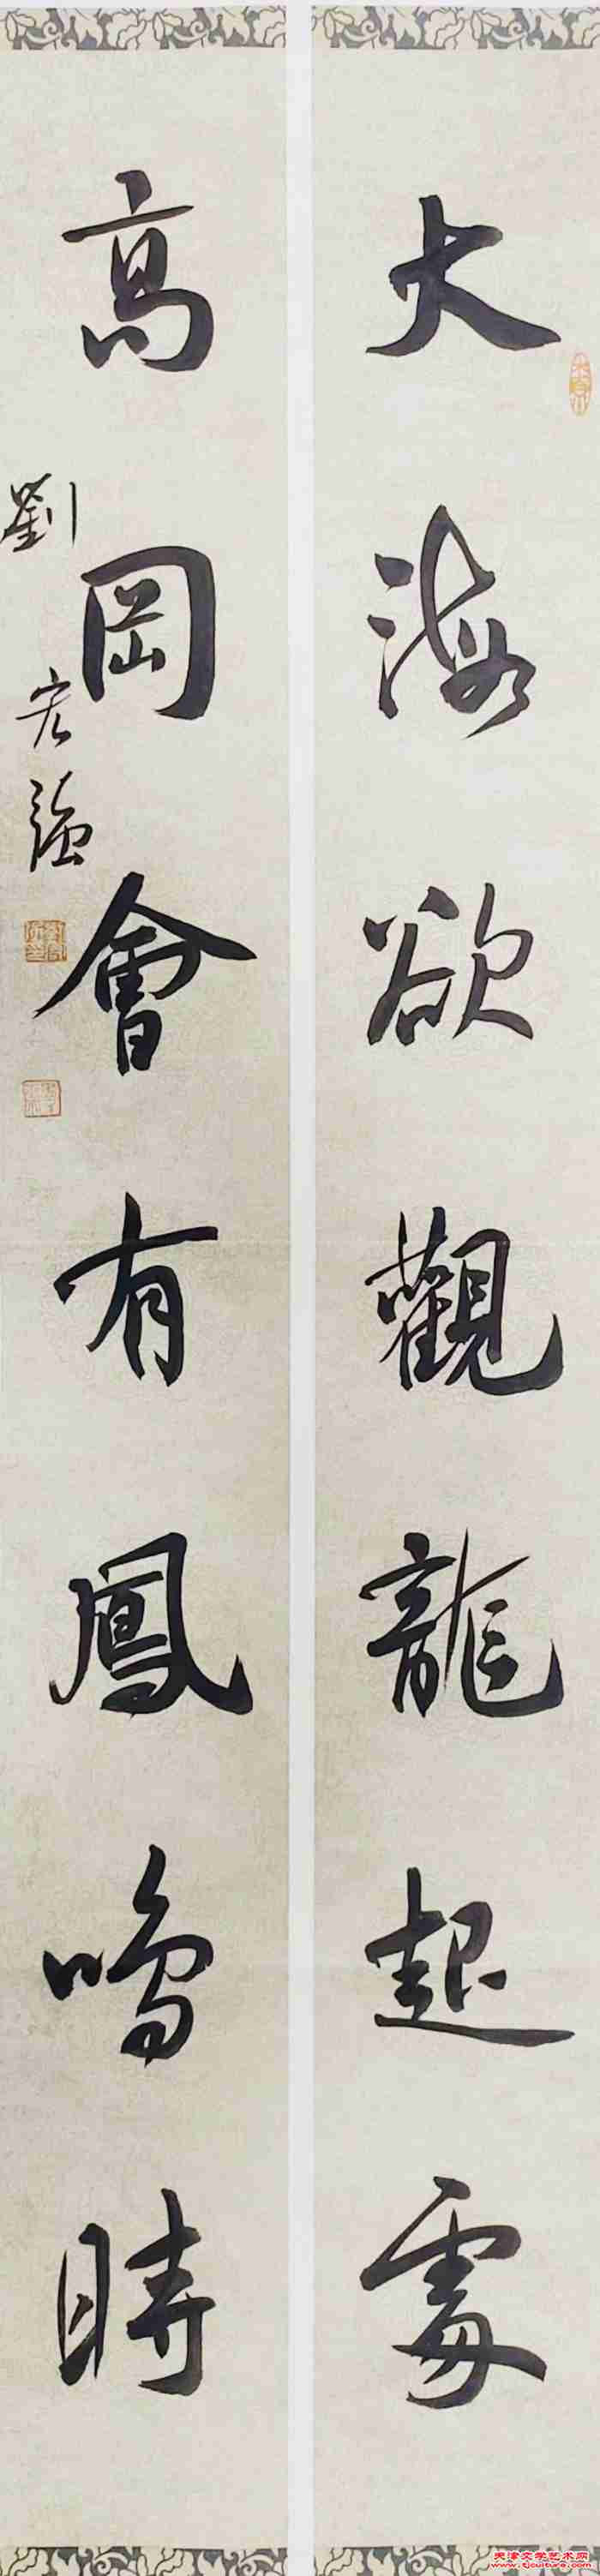 大海欲觀龍起處
高岡會有鳳鳴時
劉宏強
天津文学艺术网
www.tjculture.com